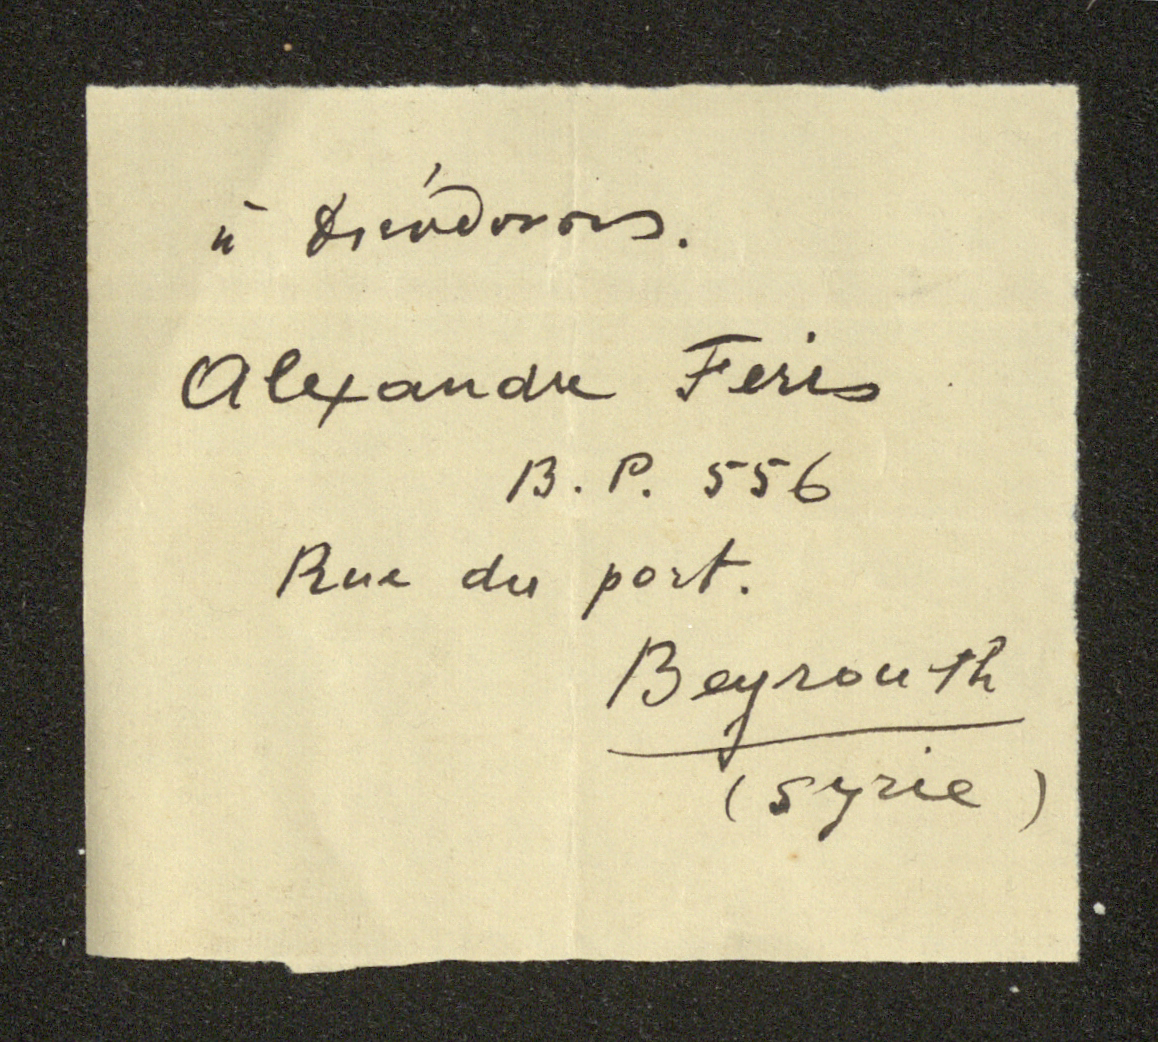 ἡ διεύθυνσις.
Alexandre Feris
B. P. 556
Rue du port.
Beyrouth
(Syrie)